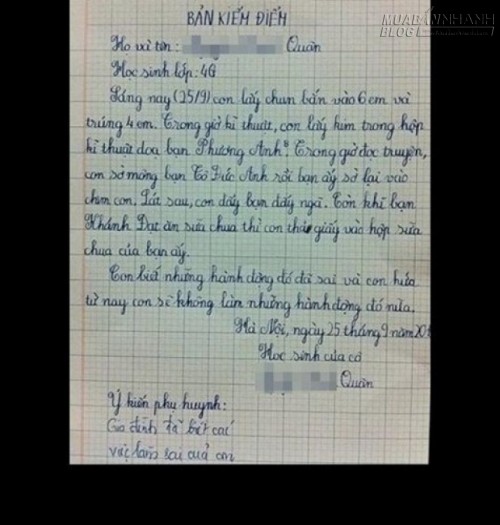 MUABANNHANH
BLOG
BẢN KIỂM ĐIỂM
Họ và tên: Quân
Học sinh lớp: 4G
Sáng nay (25/9) con lấy chun bắn vào 6 em và
trúng 4 em. Trong giờ kĩ thuật, con lấy kim trong hộp
kĩ thuật doạ bạn Phương Anh. Trong giờ đọc truyện,
con sờ mông bạn Tô Đức Anh rồi bạn ấy sờ lại vào
chim con. Lát sau, con đẩy bạn đấy ngã. Còn khi bạn
Khánh Đạt ăn sữa chua thì con thả giấy vào hộp sữa
chua của bạn ấy.
Con biết những hành động đó đã sai và con hứa
từ nay con sẽ không làm những hành động đó nữa.
Hà Nội, ngày 25 tháng 9 năm 20
Học sinh của cô
Quân
Ý kiến phụ huynh:
Gia đình đã biết các
việc làm sai của em